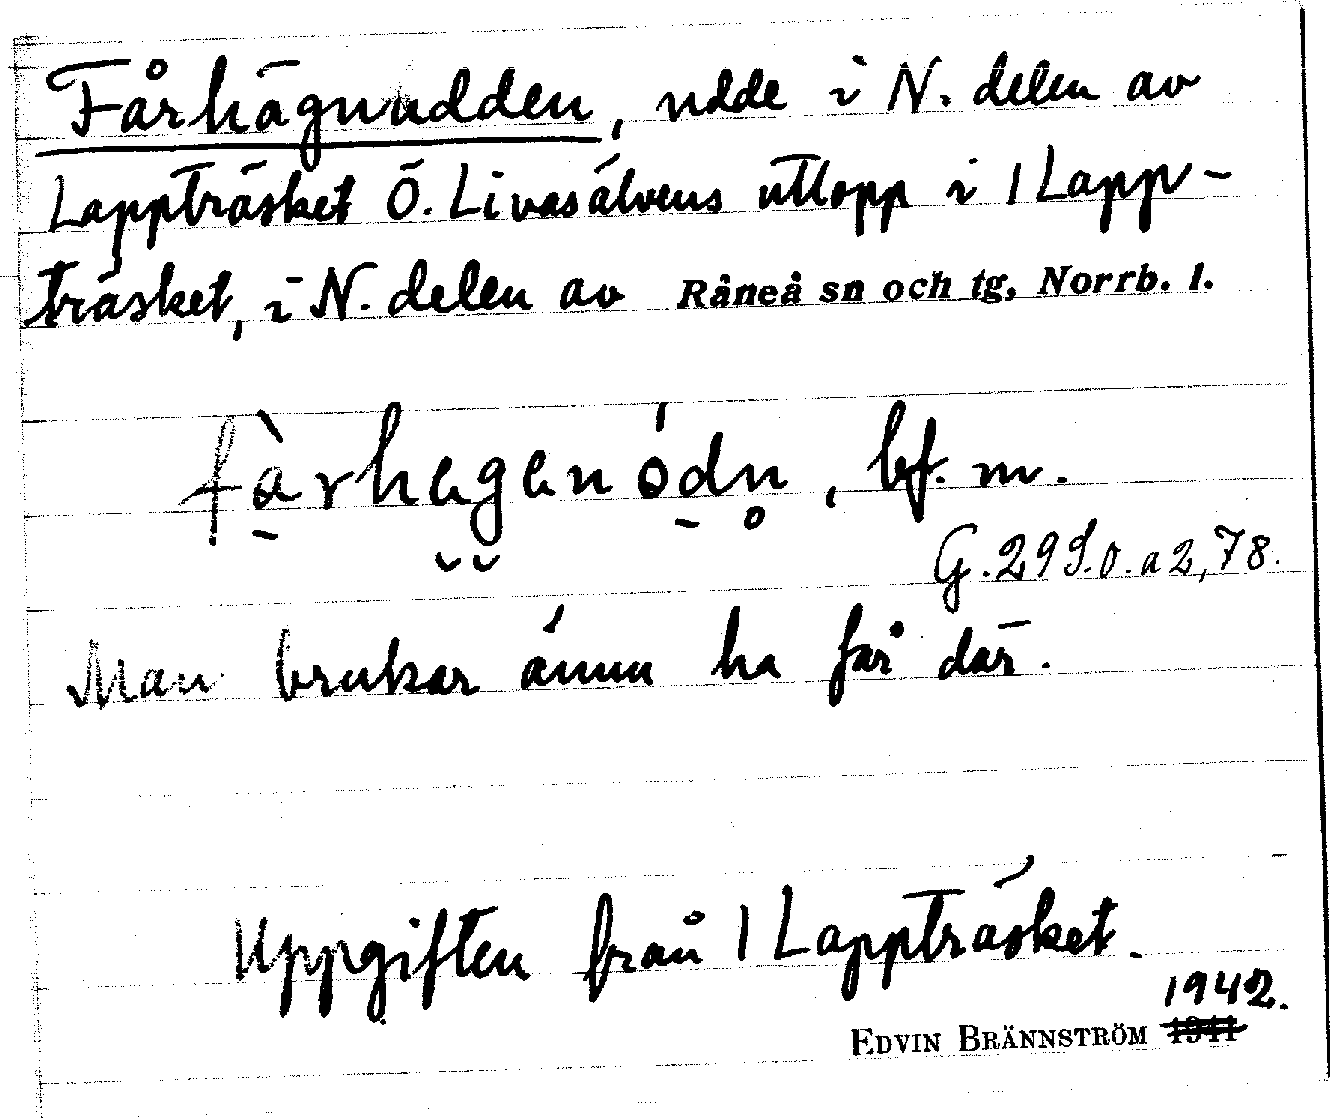 Fårhägnudden, udde i N. delen av
Lappträsket Ö. Livasälvens utlopp i 1 Lapp-
träsket, i N. delen av Råneå sn och tg, Norrb. l.
fàrhaganódn, bf. m.
G. 29 S. o. a 2, 78.
Man brukar ännu ha får där.
Uppgiften från 1 Lappträsket.
1942.
EDVIN BRÄNNSTRÖM 1941